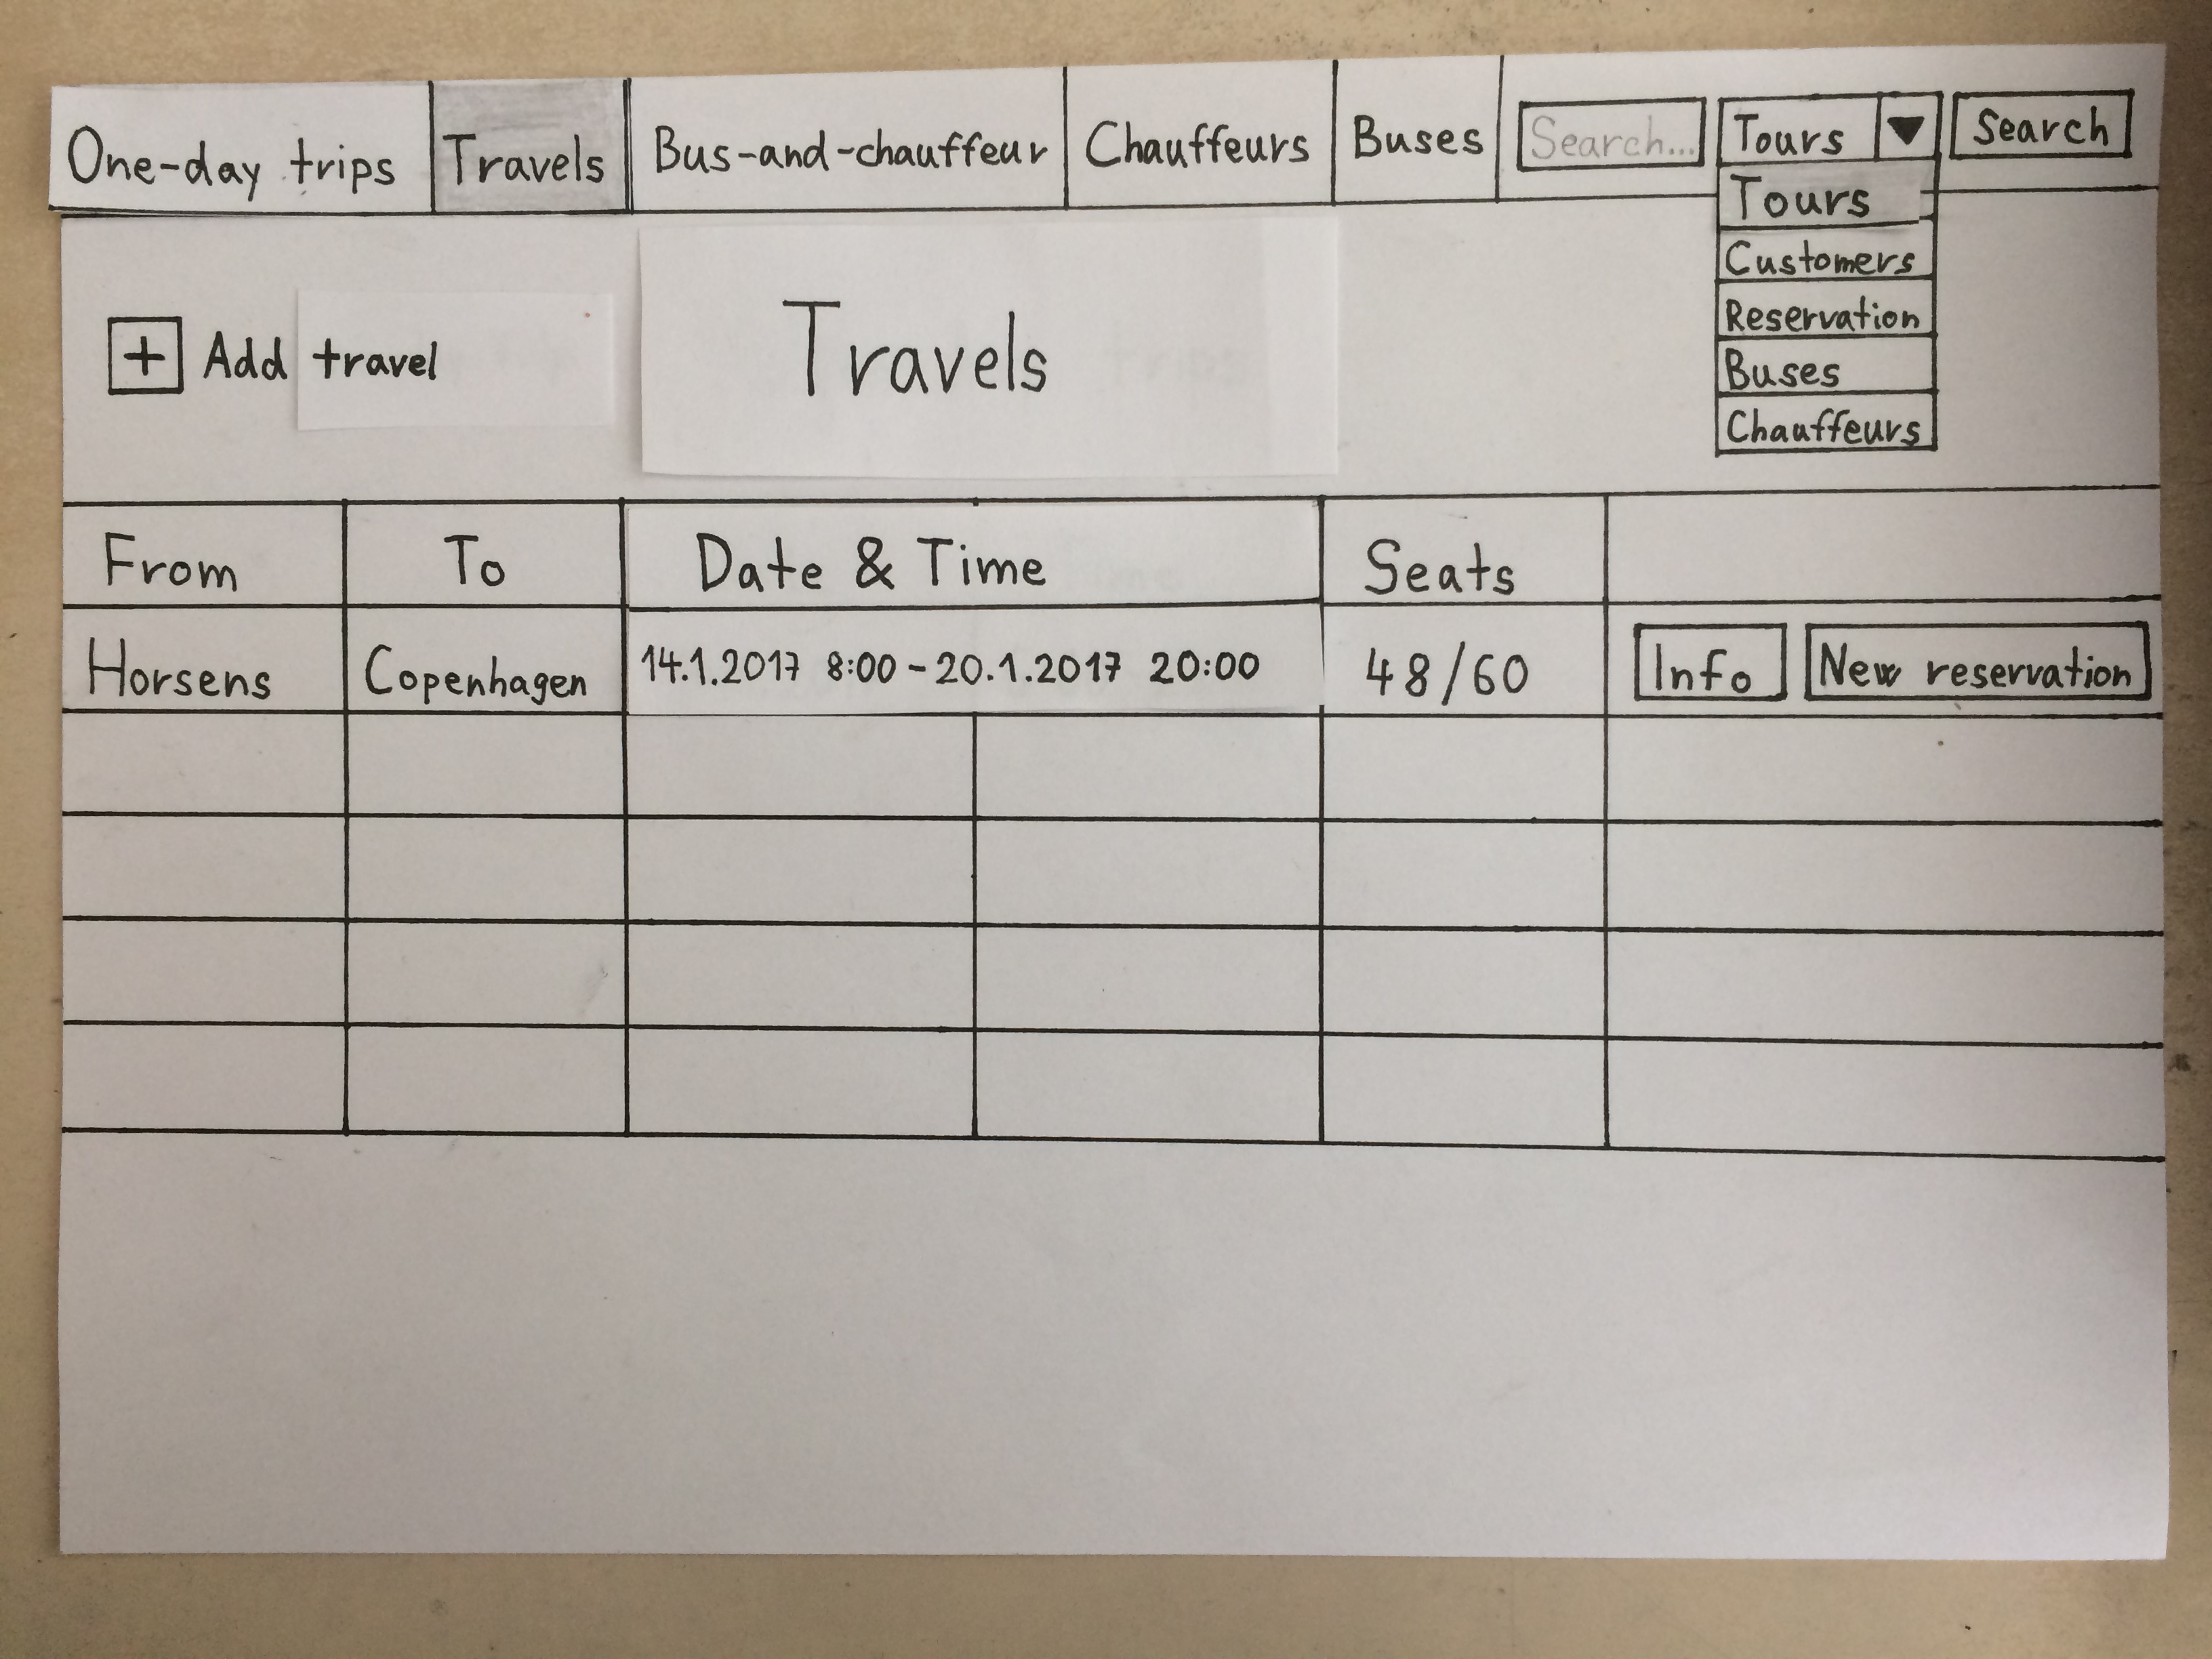 One-day trips Travels Bus-and-chauffeur Chauffeurs Buses Search... Tours Search
Tours
Customers
Reservation
Buses
Chauffeurs
+ Add travel
Travels
From To Date & Time Seats
Horsens Copenhagen 14.1.2017 8:00 - 20.1.2017 20:00 48/60 Info New reservation